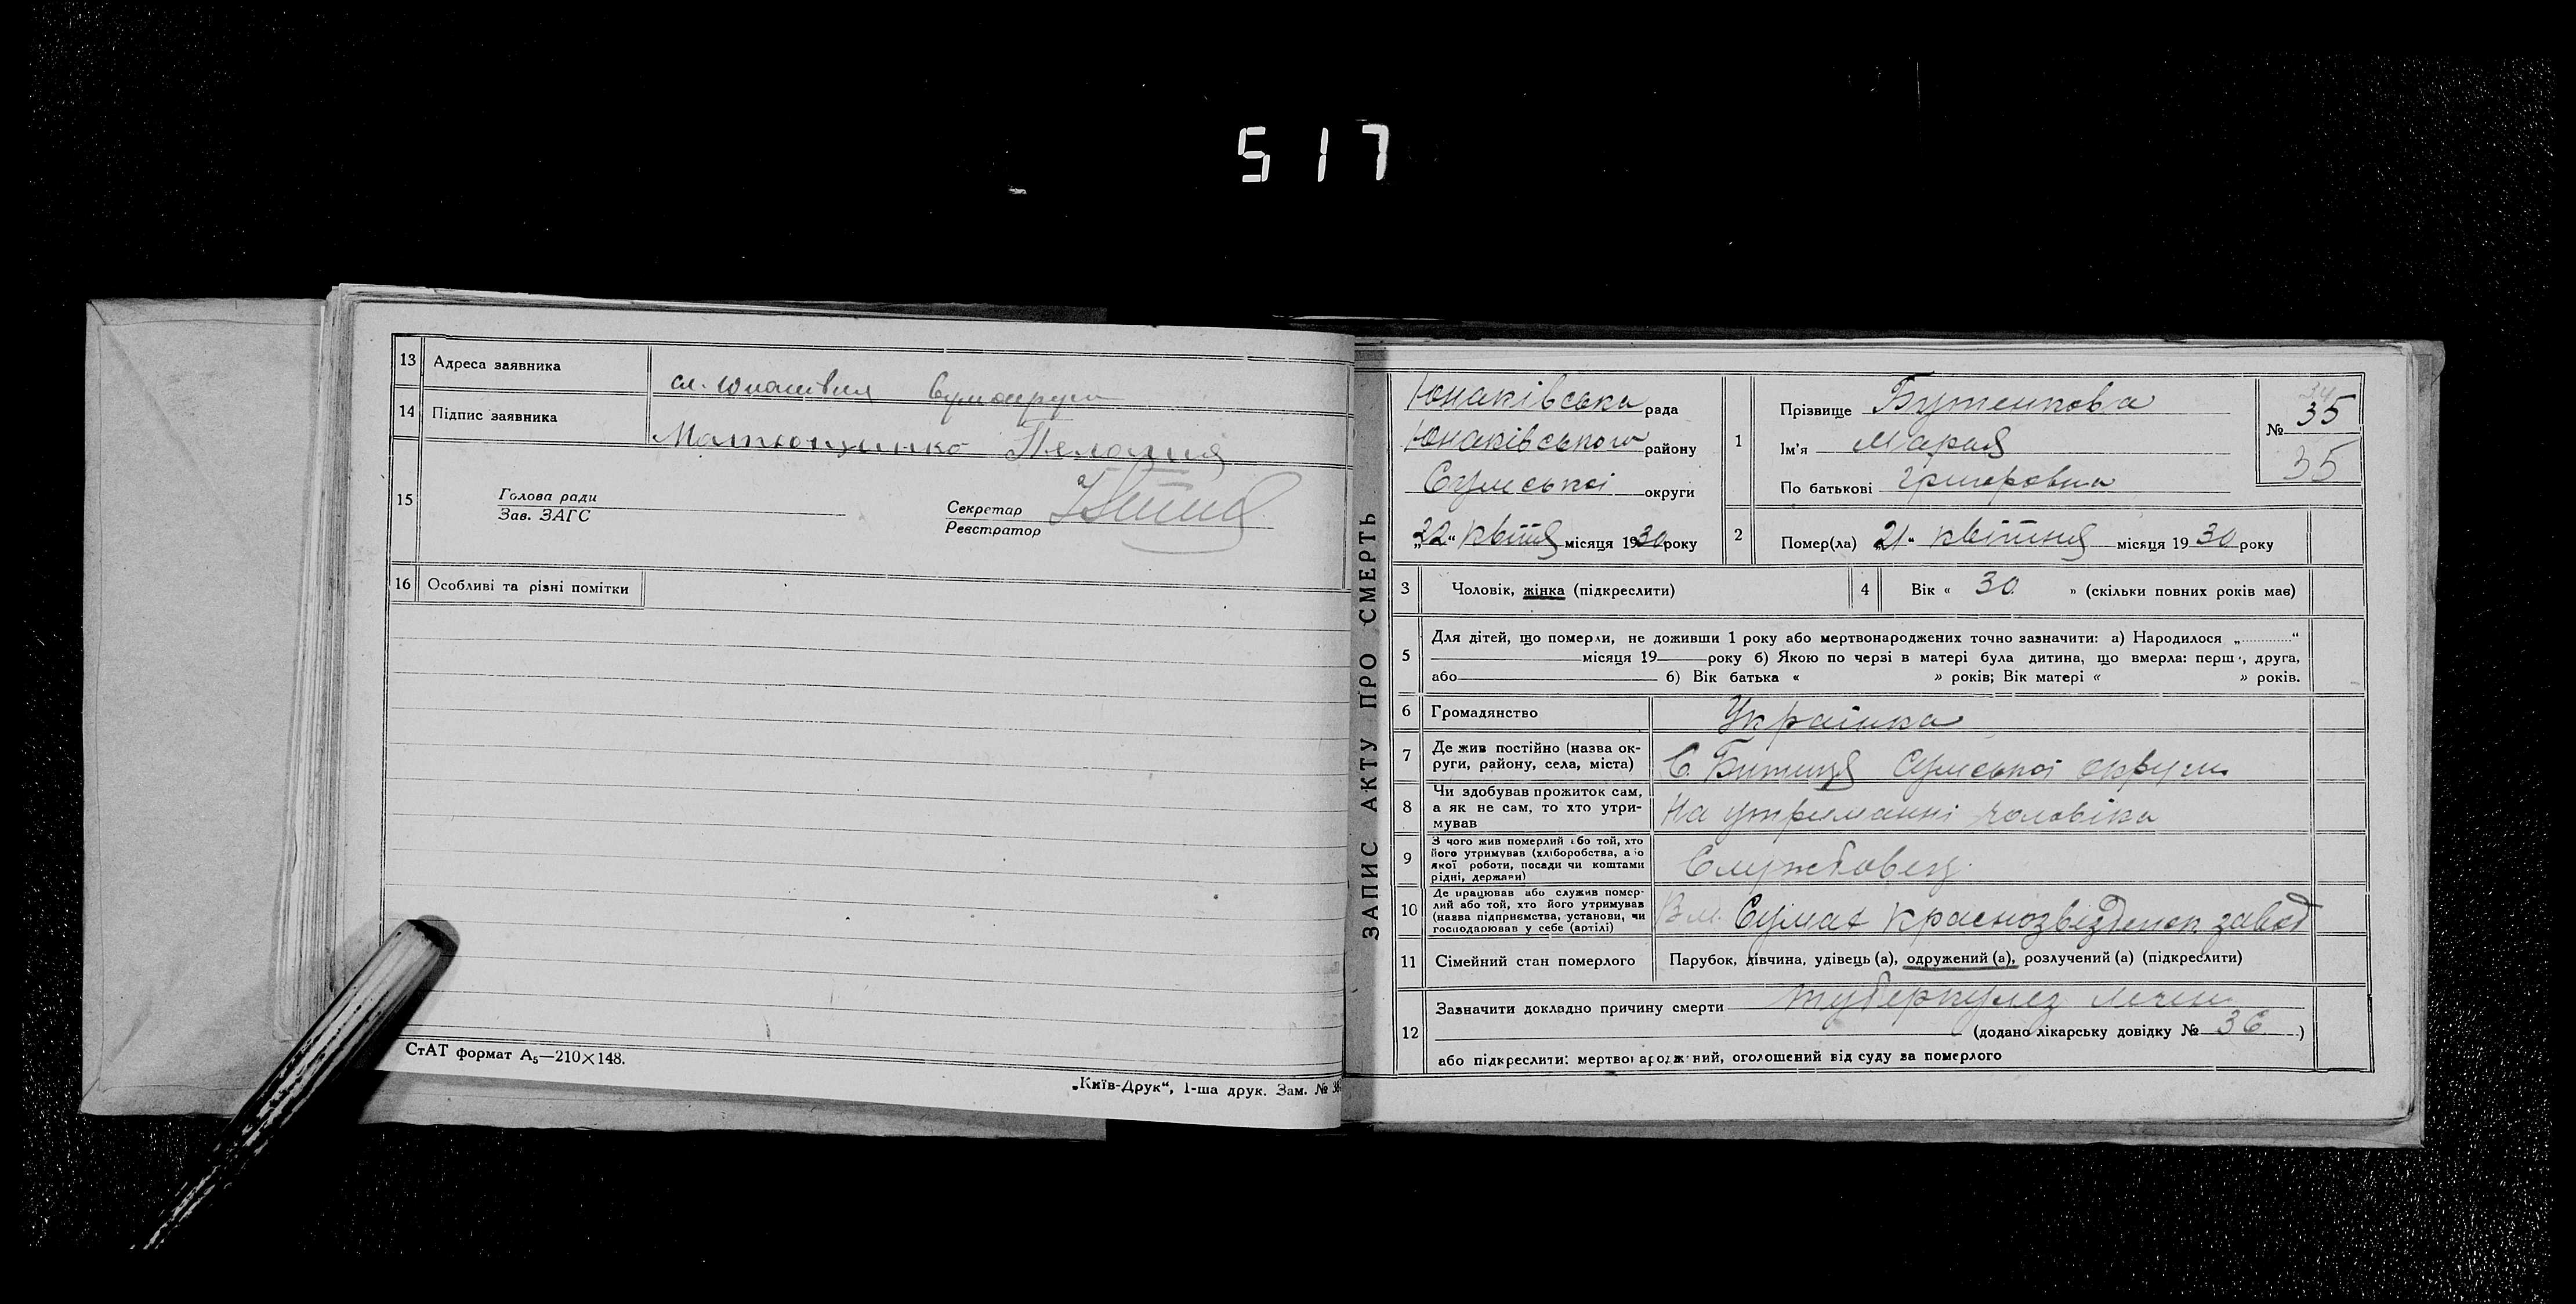 517
13 Адреса заявника сл. Юнаківка Сумокруги
14 Підпис заявника Матющинко Пелагия
15 Голова ради
Зав. ЗАГС
Секретар
Реєстратор
16 Особливі та різні помітки
СтАТ формат А₅—210×148.
„Київ-Друк“, 1-ша друк. Зам. №
ЗАПИС АКТУ ПРО СМЕРТЬ
Юнаківська рада
Юнаківського району
Сумської округи
„22“ квітня місяця 1930 року
1 Прізвище Бутенкова
Ім'я Мария
По батькові Григоровна
№ 35
35
2 Помер(ла) „21“ квітня місяця 1930 року
3 Чоловік, жінка (підкреслити)
4 Вік « 30 » (скільки повних років має)
5 Для дітей, що померли, не доживши 1 року або мертвонароджених точно зазначити: а) Народилося „ “
місяця 19 року б) Якою по черзі в матері була дитина, що вмерла: перш , друга,
або б) Вік батька « » років; Вік матері « » років.
6 Громадянство Українка
7 Де жив постійно (назва ок-
руги, району, села, міста) С. Битиця Сумської округи
8 Чи здобував прожиток сам,
а як не сам, то хто утри-
мував На утриманні чоловіка
9 З чого жив померлий або той, хто
його утримував (хліборобства, або
якої роботи, посади чи коштами
рідні, держави) Службовец
10 Де працював або служив помер-
лий або той, хто його утримував
(назва підприємства, установи, чи
господарював у себе (артілі) В м. Сумах Краснозвізденск завод
11 Сімейний стан померлого Парубок, дівчина, удівець (а), одружений (а), розлучений (а) (підкреслити)
12 Зазначити докладно причину смерти туберкулез
(додано лікарську довідку № 36 )
або підкреслити: мертвонароджений, оголошений від суду за померлого